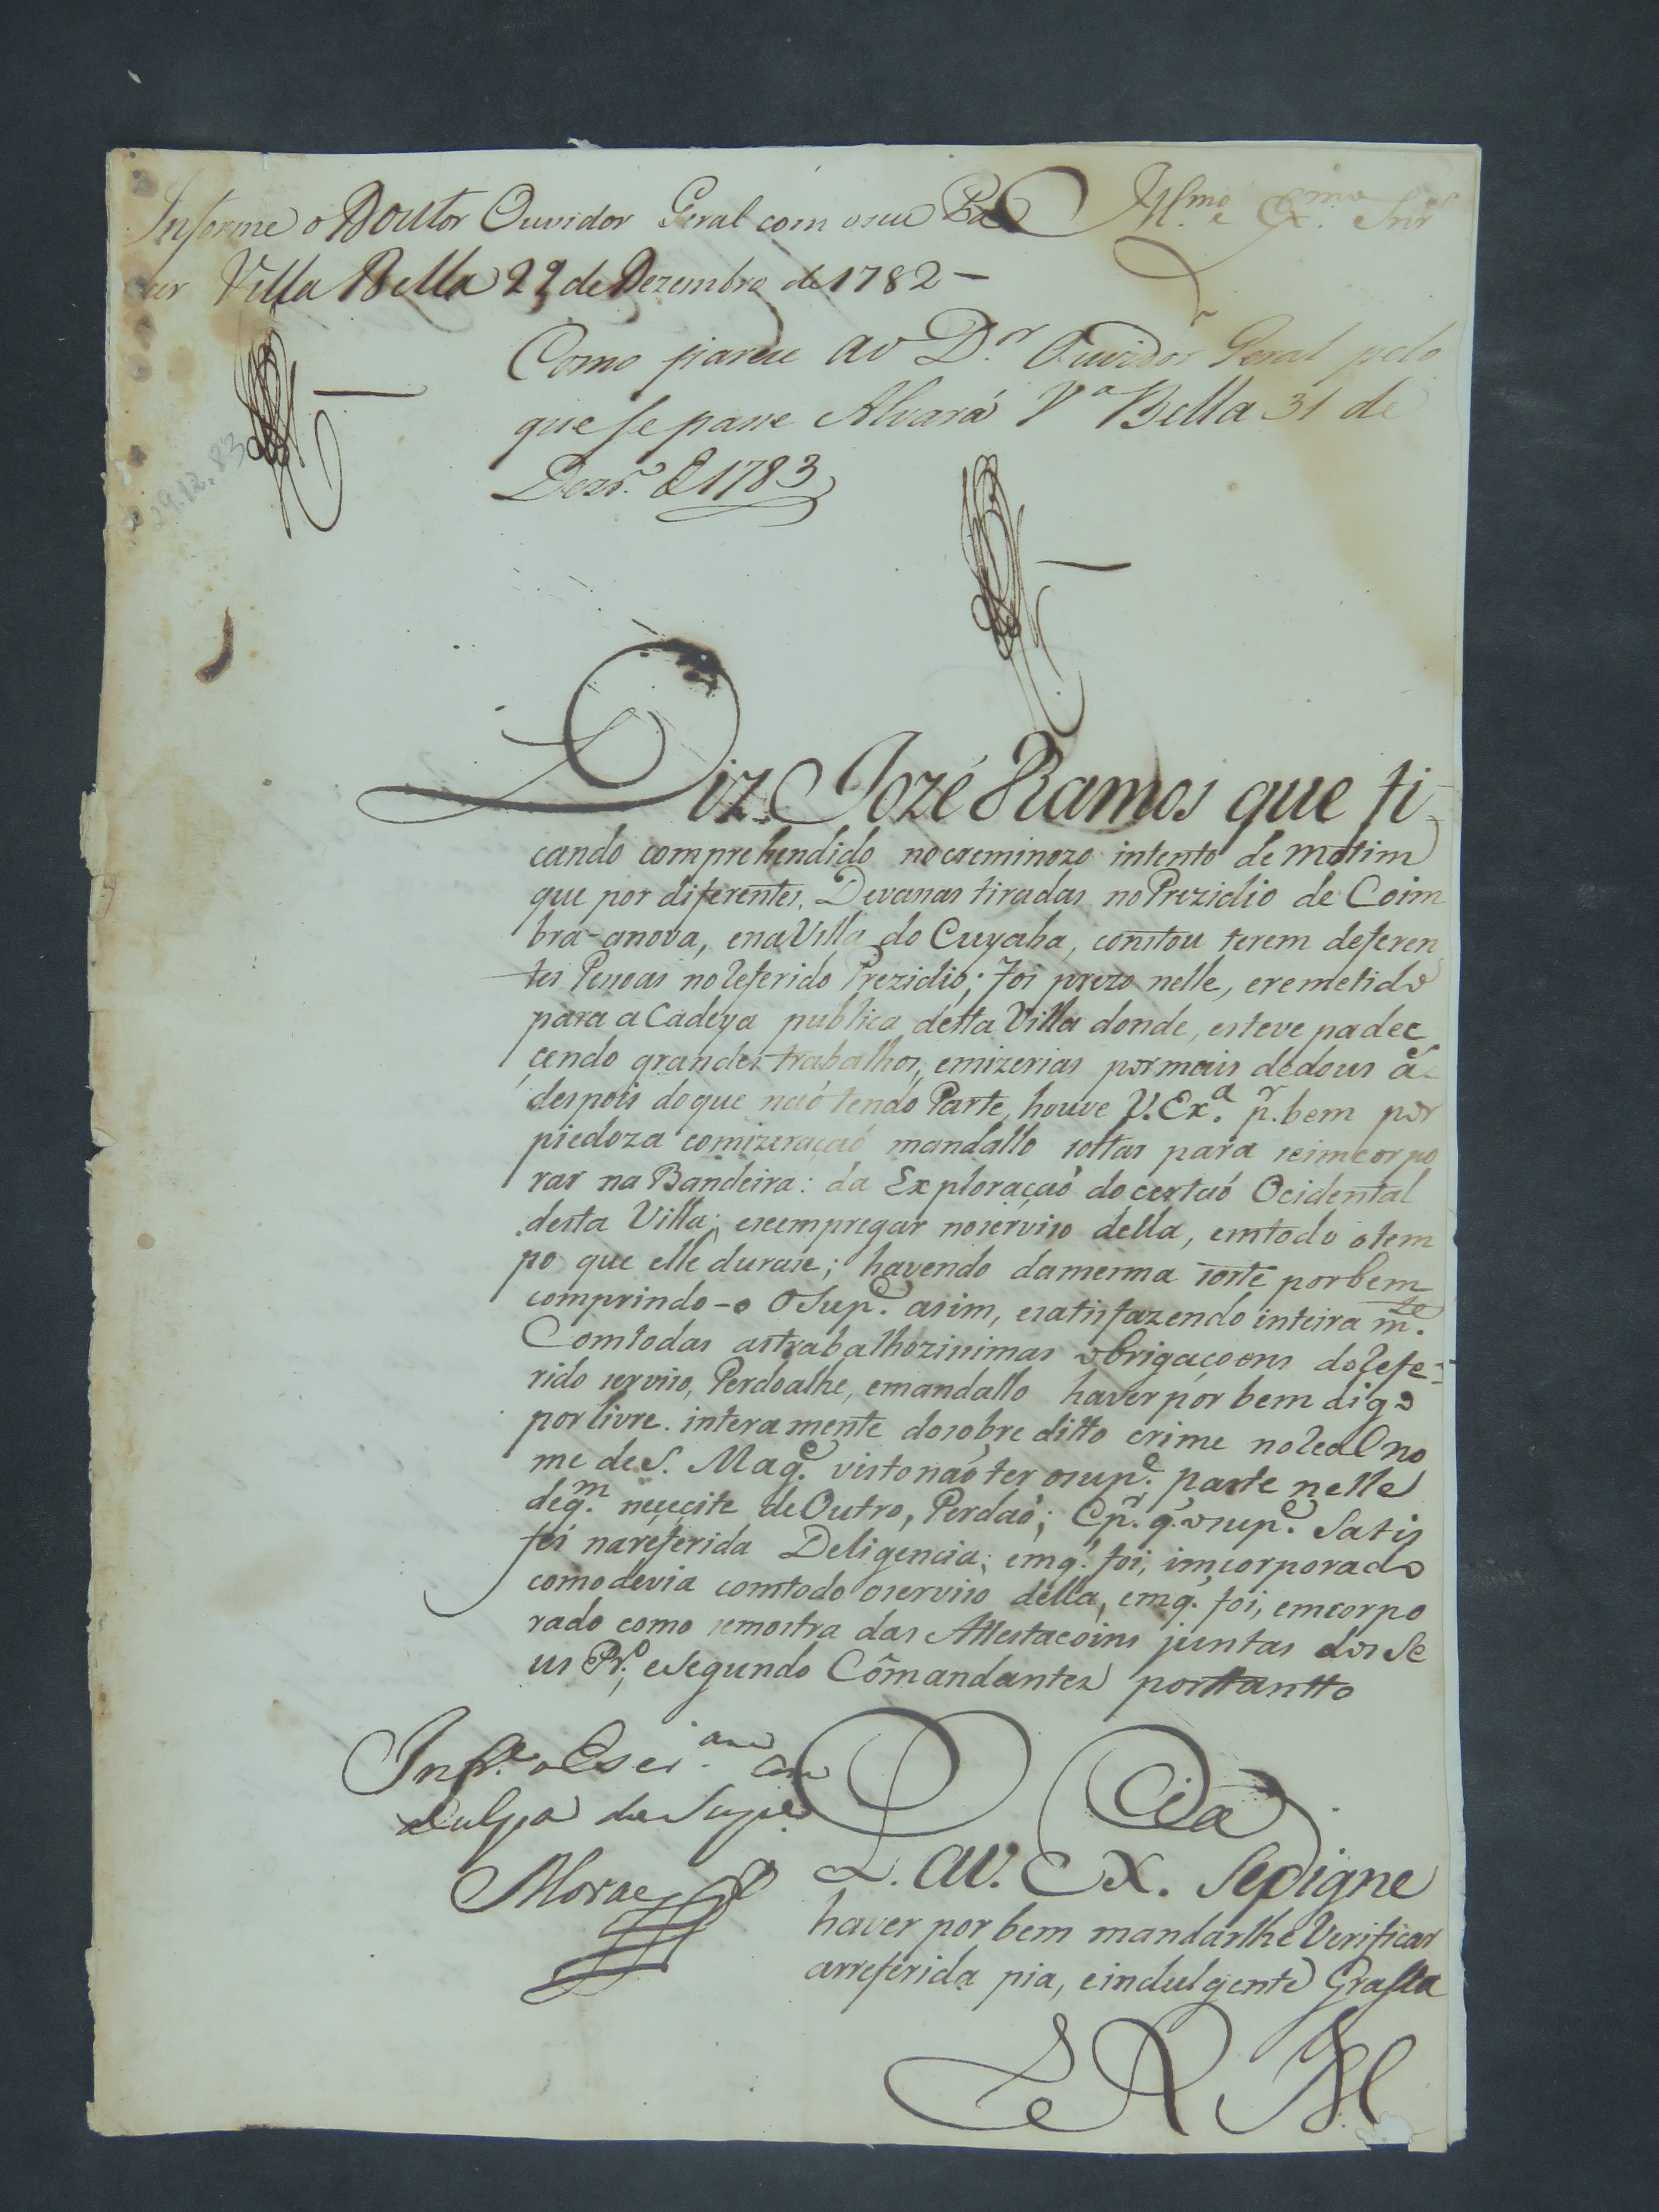 Informe o Doutor Ouvidor Geral com o seu Pa
Illmo. e Exmo. Snr
cer Villa Bella 29 de Dezembro de 1782 -
Como pareu ao D.or Ouvidor Geral pelo
que se passe Alvará V.a Bella 31 de
Dezr.o d 1783
29.12.83
Diz Jozé Ramos que fi-
cando comprehendido no creminozo intento de motim
que por diferentes, Devanas tiradas no Prezidio de Coim
bra-anova, ena Villa do Cuyaba, constou terem deferen
tes Pessoas no referido Prezidio; foi prezo nelle, eremetido
para a Cadeya publica desta Villa donde, esteve padec
cendo grandes trabalhos, emizerias por mais dedous ã
despois do que naó tendo Parte, houve V. Ex.a p.r bem por
piedoza comizeraçaó mandallo soltar para seimcorpo
rar na Bandeira: da Exploraçaó do certaó Ocidental
desta Villa; eseempregar noserviso della, emtodo otem
po que elle durase; havendo damesma sorte porbem
comprindo-o OSup.e asim, esatisfazendo inteira m.te
Comtodas astrabalhozisimas obrigaçoens do refe-
rido serviso, Perdoalhe, emandallo haver por bem digo
porlivre interamente dosobre ditto crime noReal no
me de S. Mag.e visto naó ter osup.e parte nelle
deq.m neçeçite de Outro, Perdaó; Ep.r q. osup.e Satis
fés nareferida Deligencia; emq. foi, imcorporado
como devia comtodo oserviso della, emq. foi, emcorpo
rado como semostra das Attestacoins juntas dos Se
us Pr.o, eSegundo Cômandantes porttantto
Infr.e o Escr.am com
a culpa do Supe.
Moraes
P. a V. Ex.cia Sedigne
haver por bem mandarlhe Verificar
arreferida pia, eindulgente Grassa
E R M